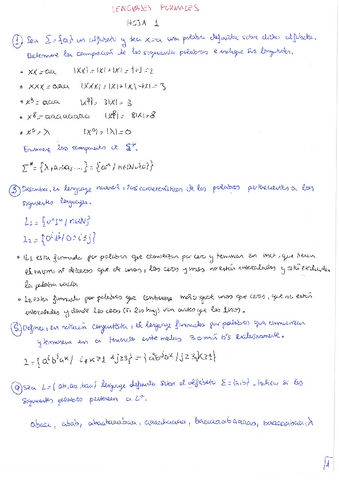 LENGUAJES FORMALES
HOJA 1
① Sea Σ={a} un alfabeto y sea x=a una palabra definida sobre dicho alfabeto.
Determine la composición de las siguientes palabras e indique sus longitudes.
• xx=aa |xx|=|x|+|x|=1+1=2
• xxx=aaa |xxx|=|x|+|x|+|x|=3
• x³=aaa |x³|=3|x|=3
• x⁸=aaaaaaaa |x⁸|=8|x|=8
• x⁰=λ |x⁰|=|λ|=0
Enumere los componentes de Σ*.
Σ*={λ,a,aa,...}={aⁿ/n∈N∪{0}}
en lenguaje natural, las características de las palabras pertenecientes a los
siguientes lenguajes.
L₁={0ⁿ1ⁿ/n∈N}
• L₁ esta formado por palabras que comienzan por cero y terminan en uno, que tienen
el mismo nº de ceros que de unos, los ceros y unos no están intercalados y está excluida
la palabra vacía
• L₂ esta formado por palabras que contienen más unos que ceros, que no están
intercalados y donde los ceros (si los hay) van antes que los unos.
en notación conjuntista, el lenguaje formado por palabras que comienzan
y terminan en a teniendo entre medias 3 o más b's exclusivamente.
Sea L={ab,aa,baa} lenguaje definido sobre el alfabeto Σ={a,b}, indicar si las
siguientes palabras pertenecen a L*.